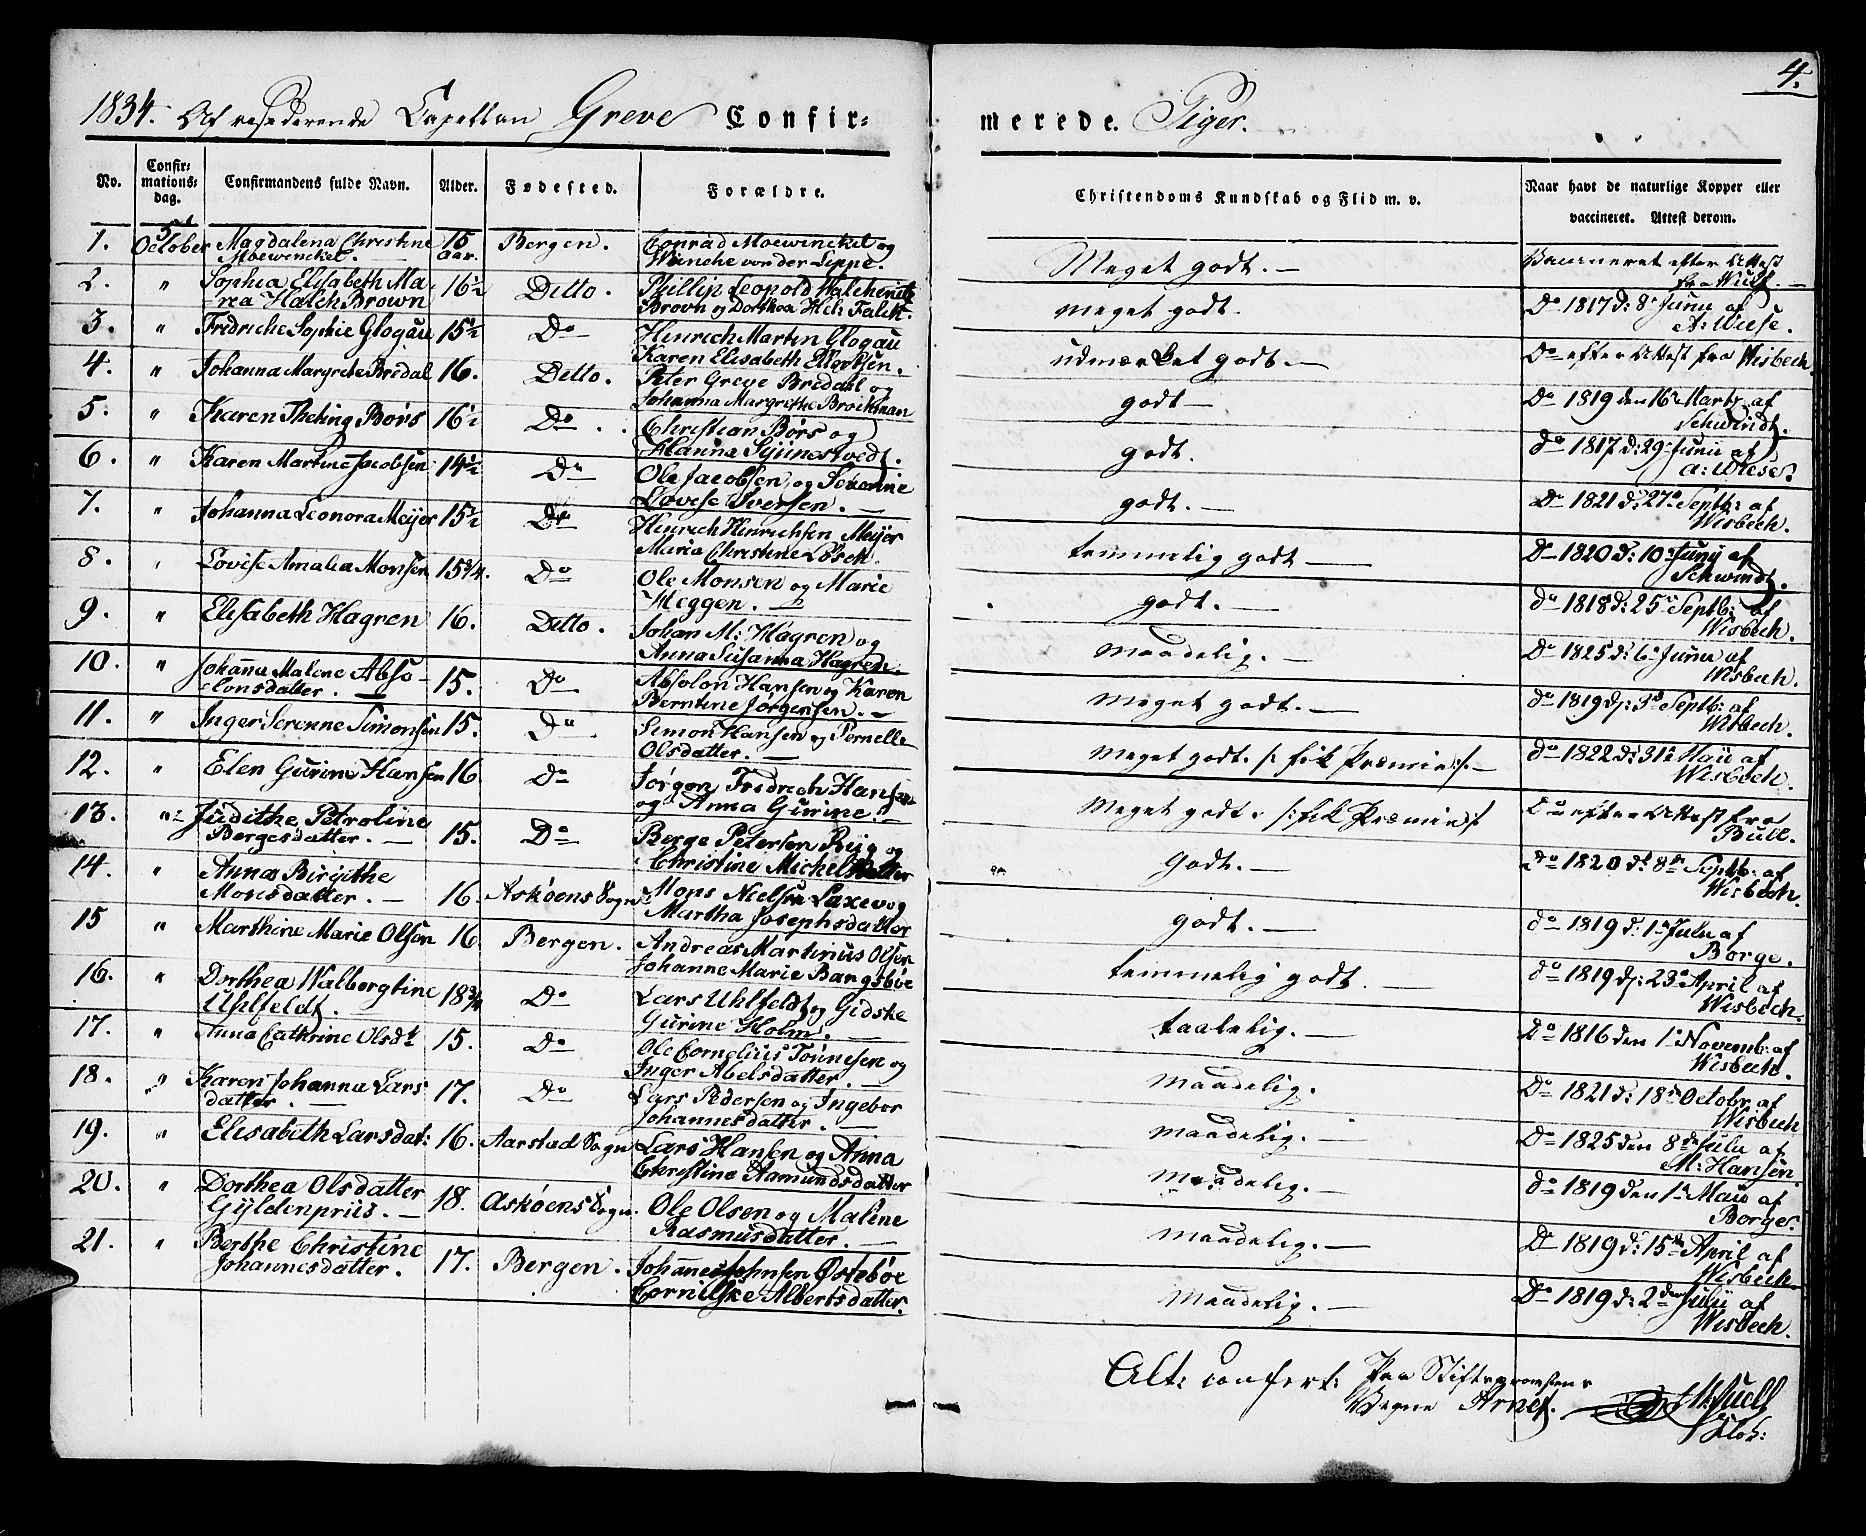 4.
1834. Af residerende Capellan Greve Confir-
merede. Piger.
No. Confir-mations-dag. Confirmandens fulde Navn. Alder. Fødested. Forældre. Christendoms Kundskab og Flid m. v. Naar havt de naturlige Kopper eller vaccineret. Attest derom.
1. 5t October Magdalena Christine Moewinckel. 15 aar. Bergen. Conrad Moewinckel og Wenche von der Lippe. Meget godt. Vaccineret efter Attest fra Wulf.
2. " Sophia Elisabeth Marea Halch Brown 16½ Ditto. Phillip Leopold Brovn og Dorthea Hel: Falck. meget godt. Do 1817 d: 8 Juny af A: Wiese.
3. " Fredriche Sophie Glogau 15½ Do Hinrich Martin Glogau Karen Elisabeth Ellertsen. udmærket godt. Do efter Attest fra Wisbech.
4. " Johanna Margrete Bredal 16. Ditto. Peter Greve Bredal og Johanna Margrethe Brockman godt Do 1819 den 16 Marts af Schwindt.
5. " Karen Theting Børs 16½ Do Christian Børs og Hanna godt. do 1817 d: 29 Juni af A: Wiese.
6. " Karen Martine Jacobsen 14½ Do Ole Jacobsen og Severine Lovise Iversen. godt. Do 1821 d: 27 Septb: af Wisbech.
7. " Johanna Leonora Meijer 15½ Do Hinrich Hinrichsen Meijer Maria Christine Løsch. temmelig godt. Do 1820 d: 10 Juny af Schwindt.
8. " Lovise Amalia Monsen 15¾. Do Ole Monsen og Marie Meggen. godt. do 1818 d: 25 Septb: af Wisbech.
9. " Elisabeth Hagren 16. Ditto. Johan M: Hagren og Anna Susanna Hagren. maadelig. Do 1825 d: 6 Juni af Wisbech.
10. " Johanna Malene Absolonsdatter. 15. Do Absolon Hansen og Karen Berntine Jørgensen. Meget godt. do 1819 d: 3 Septb: af Wisbech.
11. " Inger Serenne Simonsen 15. Do Simon Hansen og Pernelle Olsdatter. Meget godt. /: fik Præmie :/. do 1822 d: 31 Maii af Wisbech.
12. " Elen Gurine Hansen 16 Do Jørgen Fredrich Hansen og Anna Gurine Meget godt. /: fik Præmie :/ Do efter Attest fra Bull.
13. " Judithe Petroline Bergesdatter. 15. Do Berge Petersen Ryg og Christine Micheldatter Godt. Do 1820 d: 8 Septb: af Wisbech.
14. " Anna Birgithe Monsdatter. 16. Askøens Sogn Mons Nielsen Laxevog Martha Josephsdatter godt. do 1819 d: 1 Julu af Borge.
15 " Marthine Marie Olsen 16. Bergen. Andreas Martinus Olsen Johanne Marie Bangsbøe temmelig godt. do 1819 d: 23 April af Wisbech.
16. " Dorthea Walborgtine Uhlfeldt. 18¾ Do Lars Uhlfeldt og Gidske Gurine Holm. taalelig. Do 1816 den 1 Novemb: af Wisbech.
17. " Anna Cathrine Olsdt 15. Do Ole Cornelius Tønnesen og Inger Abelsdatter. maadelig. Do 1821 d: 18 Octobr af Wisbech
18. " Karen Johanna Larsdatter. 17. Do Lars Pedersen og Ingebor Johannesdatter. maadelig. Do 1825 den 8de Julu af M: Hansen.
19. " Elisabeth Larsdat: 16. Aarstad Sogn Lars Hansen og Anna Christina Aamundsdatter maadelig. do 1819 den 1 Mau af Borge.
20. " Dorthea Olsdatter Gyldenpriis. 18. Askøens Sogn. Ole Olsen og Malene Rasmusdatter. maadelig. Do 1819 d: 15de April af Wisbech.
21. " Berthe Christine Johannesdatter. 17. Bergen. Johannes Johnsen Østebøe Cornilske Albertsdatter. maadelig. Do 1819 d: 2den Julii af Wisbech.
Alt: confert: Paa Stiftsprovstens
Vegne Arnes.